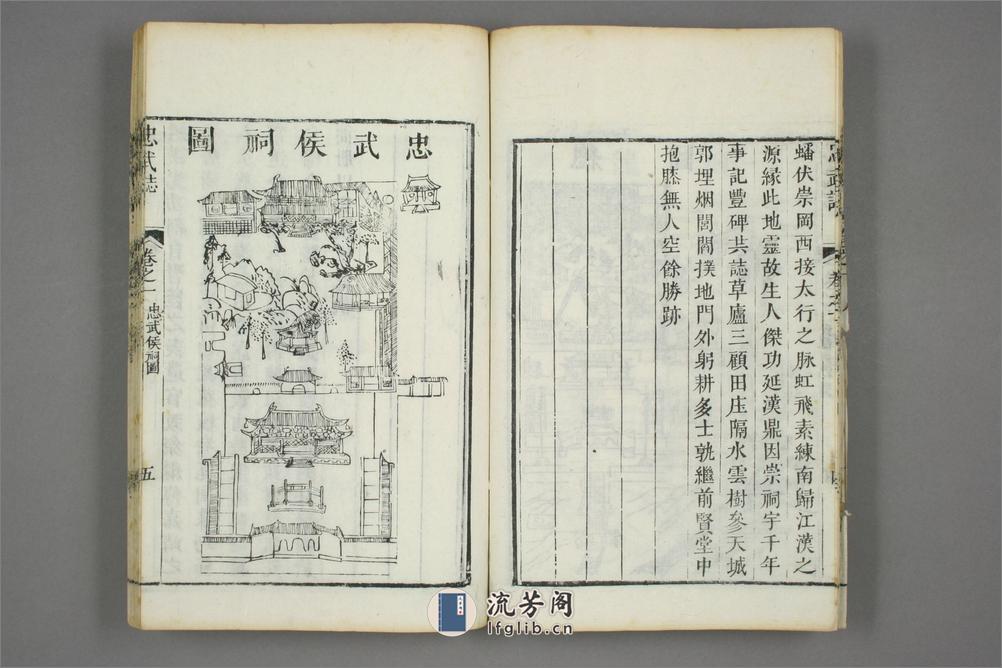 蟠伏崇岡西接太行之脉虹飛素練南歸江漢之
源縁此地靈故生人傑功延漢鼎因崇祠宇千年
事記豐碑共誌草廬三顧田庄隔水雲樹參天城
郭埋烟閭閻撲地門外躬耕多士孰繼前賢堂中
抱膝無人空餘勝跡
忠武侯祠圖
忠武誌
卷之一
忠武侯祠圖
五
流芳阁
lfglib.cn